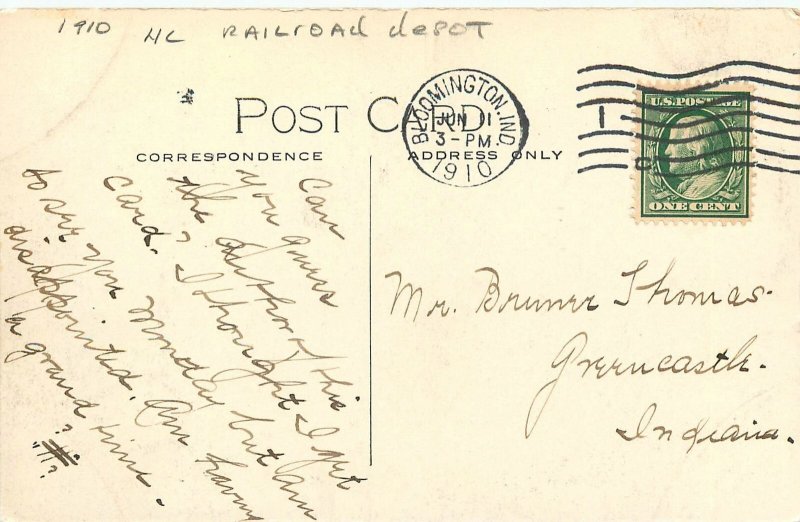 1910 HC RAILROAD depot
POST CARD
BLOOMINGTON, IND.
JUN 1
3-PM
1910
1
U.S. POSTAGE
ONE CENT
CORRESPONDENCE
ADDRESS ONLY
Can
you guess
the author of this
card? I thought I get
to see you Monday but am
disappointed. Am having
a grand time.
"?#?"
Mr. Bruner Thomas.
Greencastle.
Indiana.